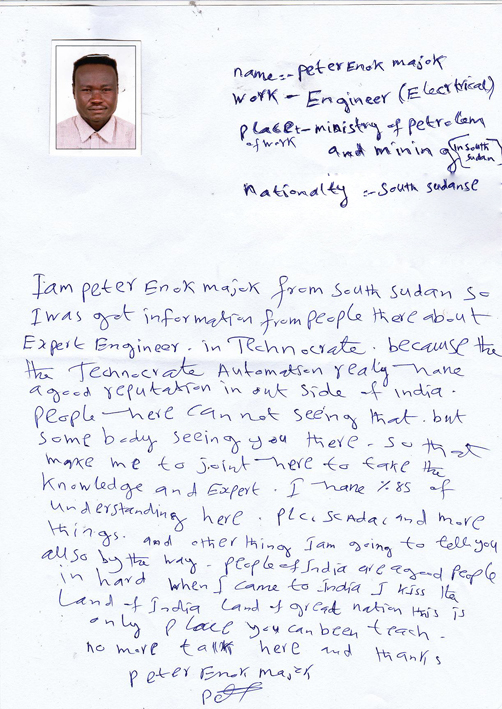 name:- peter Enok majok
work - Engineer (Electrical)
place:- ministry of petrolem
of work
and mining [in south
sudan]
nationalty :- South sudanse
I am peter Enok majok from south sudan so
I was got information from people there about
Expert Engineer. in Technocrate. because the
the Technocrate Automation realy have
a good reputation in out side of india.
people here can not seeing that. but
some body seeing you there. so that
make me to joint here to take the
knowledge and Expert. I have %85 of
understanding here. plc, scada, and more
things. and other thing I am going to tell you
allso by the way. people of India are a good people
in hard when I came to india I kiss the
Land of India land of great nation this is
only place you can been teach.
no more talk here and thanks
peter Enok majok